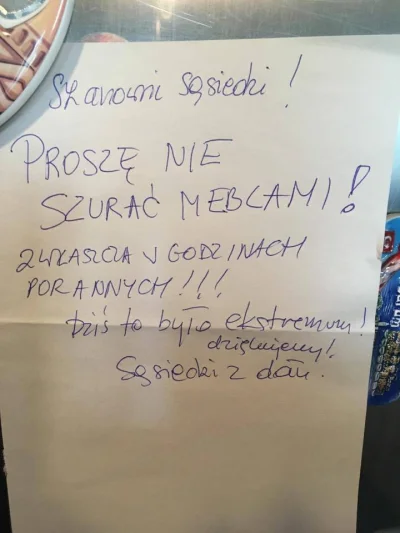 Szanowni Sąsiedki!
PROSZĘ NIE
SZURAĆ MEBLAMI!
ZWŁASZCZA W GODZINACH
PORANNYCH!!!
Dziś to było ekstremum!
dziękujemy!
Sąsiedki z dołu.